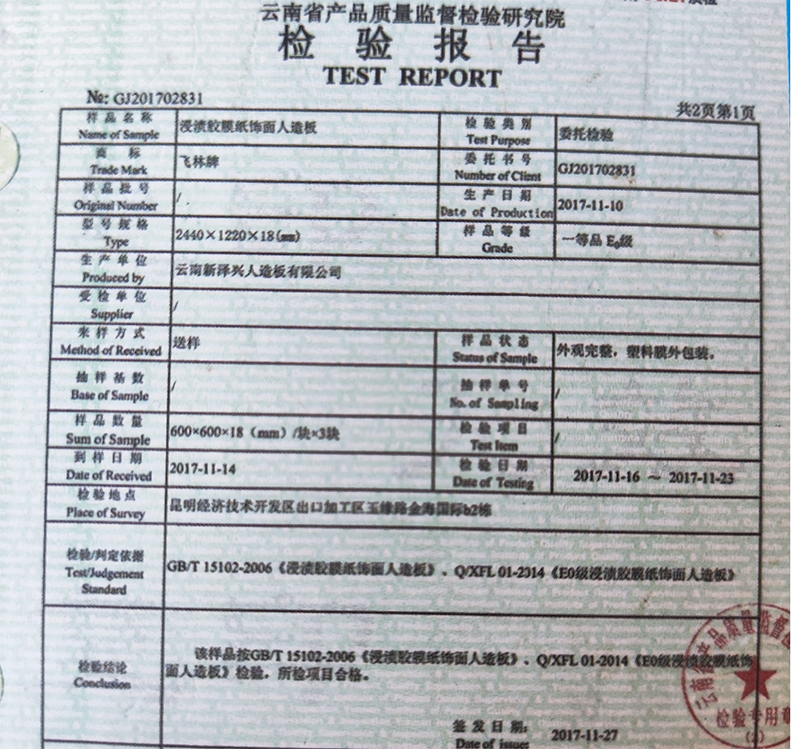 云南省产品质量监督检验研究院
检验报告
TEST REPORT
№: GJ201702831
共2页第1页
样品名称 浸渍胶膜纸饰面人造板 检验类别 委托检验
Name of Sample Test Purpose
商标 飞林牌 委托书号 GJ201702831
Trade Mark Number of Client
样品批号 / 生产日期 2017-11-10
Original Number Date of Production
型号规格 2440×1220×18(mm) 样品等级 一等品 E0级
Type Grade
生产单位 云南新泽兴人造板有限公司
Produced by
受检单位 /
Supplier
来样方式 送样 样品状态 外观完整，塑料膜外包装。
Method of Received Status of Sample
抽样基数 / 抽样单号 /
Base of Sample No. of Sampling
样品数量 600×600×18（mm）/块×3块 检验项目 /
Sum of Sample Test Item
到样日期 2017-11-14 检验日期 2017-11-16 ～ 2017-11-23
Date of Received Date of Testing
检验地点 昆明经济技术开发区出口加工区玉缘路金海国际b2栋
Place of Survey
检验/判定依据 GB/T 15102-2006《浸渍胶膜纸饰面人造板》、Q/XFL 01-2014《E0级浸渍胶膜纸饰面人造板》
Test/Judgement
Standard
检验结论
Conclusion
该样品按GB/T 15102-2006《浸渍胶膜纸饰面人造板》、Q/XFL 01-2014《E0级浸渍胶膜纸饰
面人造板》检验，所检项目合格。
签发日期: 2017-11-27
Date of issue:
检验专用章